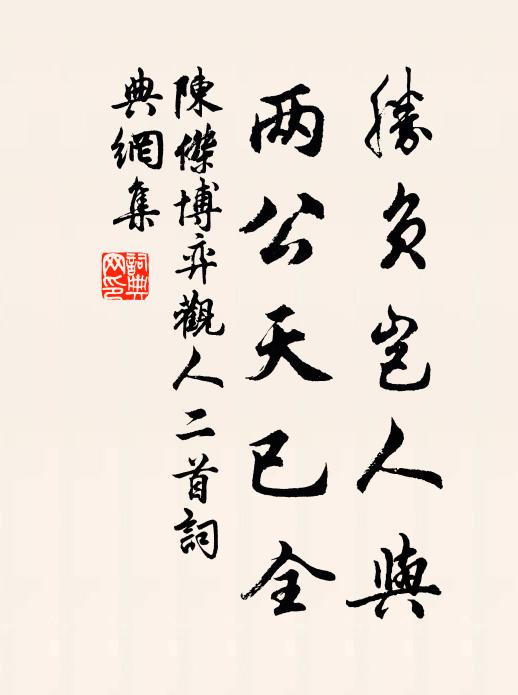 勝負豈人與
两公天已全
陳傑博弈觀人二首詞
典網集
詞典
网印